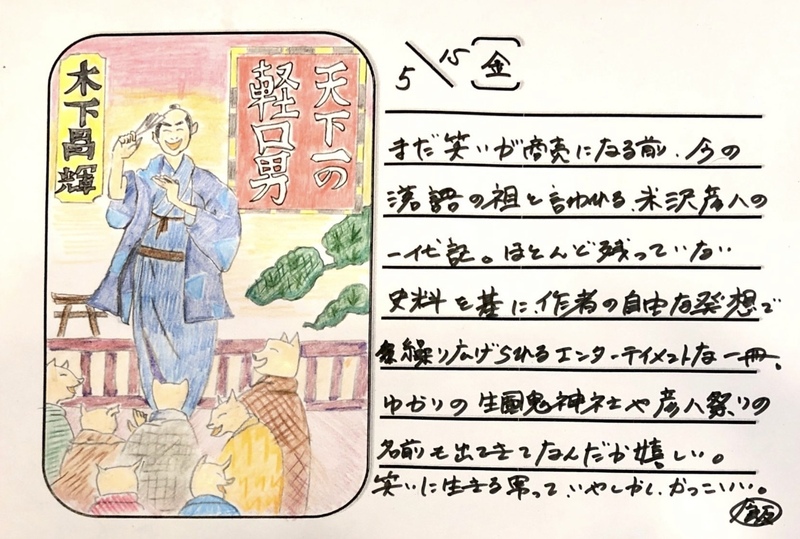 木下昌輝
天下一の
軽口男
5/15 [金]
まだ笑いが商売になる前、今の
落語の祖と言われる、米沢彦八の
一代記。ほとんど残っていない
史料を基に、作者の自由な発想で
繰り広げられるエンターテイメントな一冊。
ゆかりの生國魂神社や彦八祭りの
名前も出てきてなんだか嬉しい。
笑いに生きる男って、いやしかし、かっこいい。